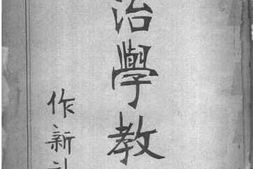 治學教
作新社